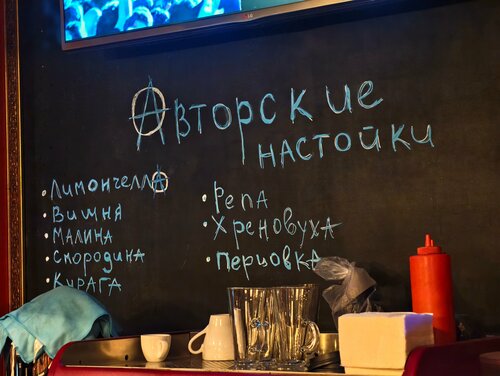 Авторские
настойки
· Лимончелла
· Вишня
· Малина
· Смородина
· Курага
· Репа
· Хреновуха
· Перцовка